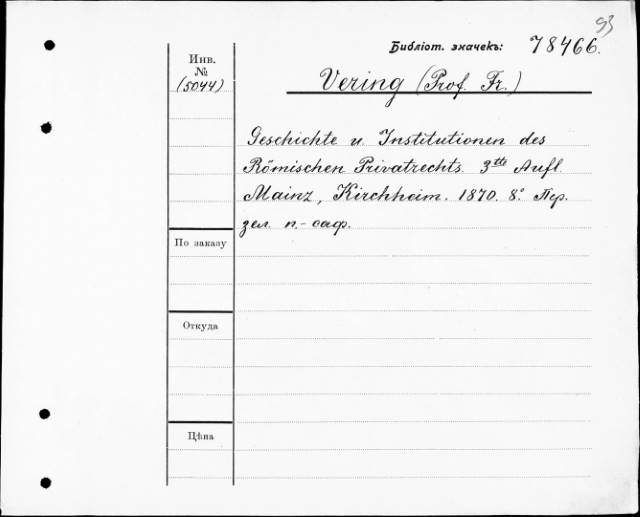 93
Библіот. значекъ: 78466.
Инв.
№
(5044)
Vering (Prof. Fr.)
Geschichte u. Institutionen des
Römischen Privatrechts. 3tte Aufl.
Mainz, Kirchheim. 1870. 8º. Пер.
зел. п.- саф.
По заказу
Откуда
Цѣна